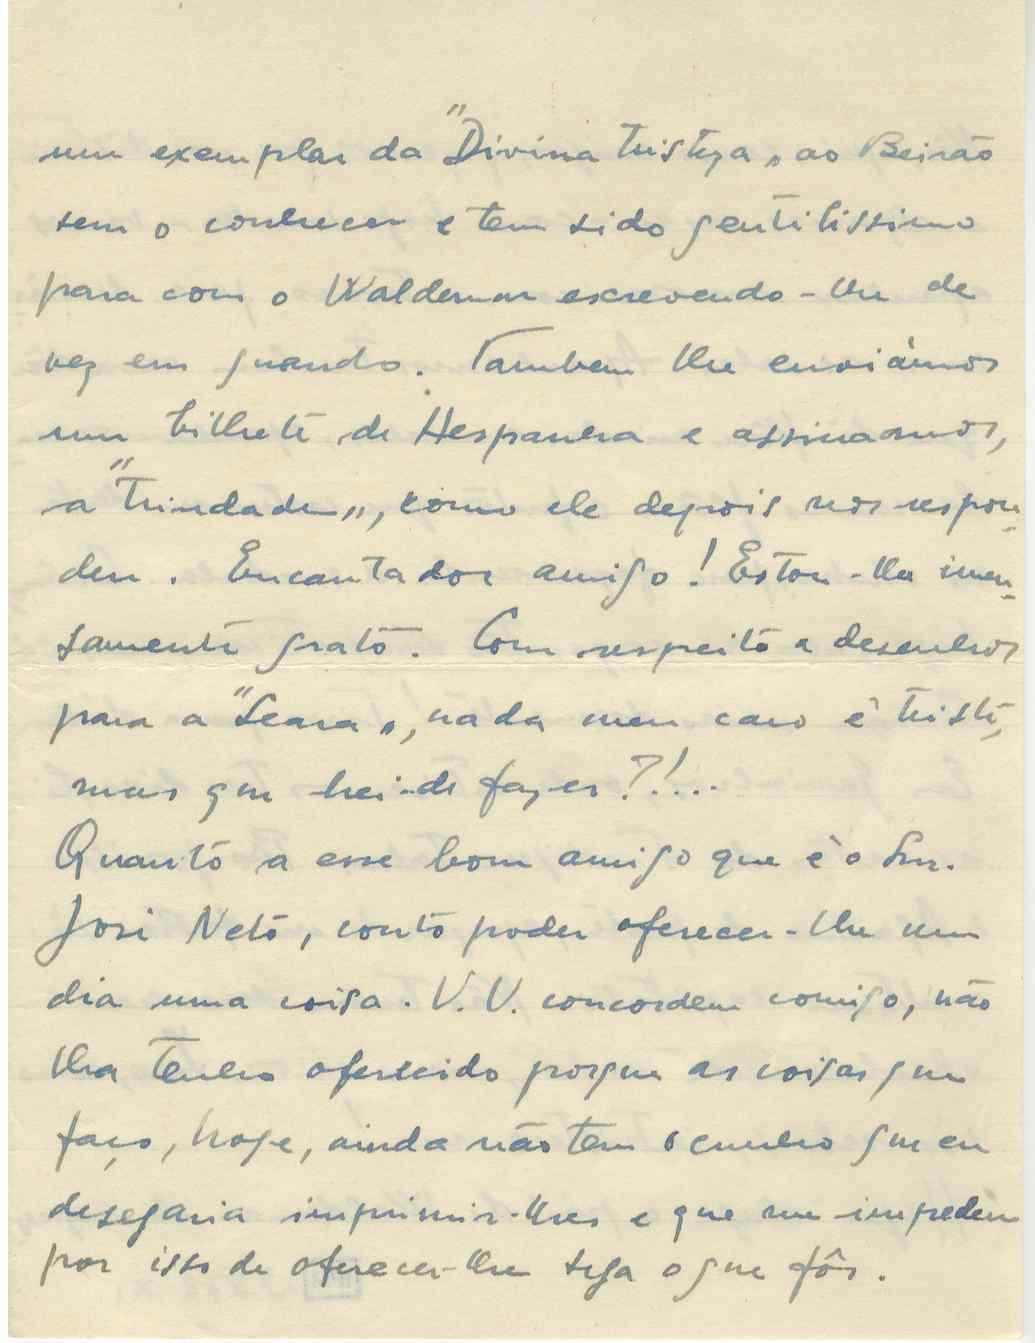 um exemplar da "Divina tristeza„ ao Beirão
sem o conhecer e tem sido gentilissimo
para com o Waldemar escrevendo-lhe de
vez em quando. Tambem lhe enviámos
um bilhete de Hespanha e assinamos,
a "Trindade„, como ele depois nos respon-
deu. Encantador amigo! Estou-lhe imen-
samente grato. Com respeito a desenhos
para a "Seara„, nada meu caro é triste,
mas que hei-de fazer?!...
Quanto a esse bom amigo que é o Snr.
José Neto, conto poder oferecer-lhe um
dia uma coisa. V.V. concordem comigo, não
lha tenho oferecido porque as coisas que
faço, hoje, ainda não tem o cunho que eu
desejaria imprimir-lhes e que me impedem
por isso de oferecer-lhe seja o que fôr.